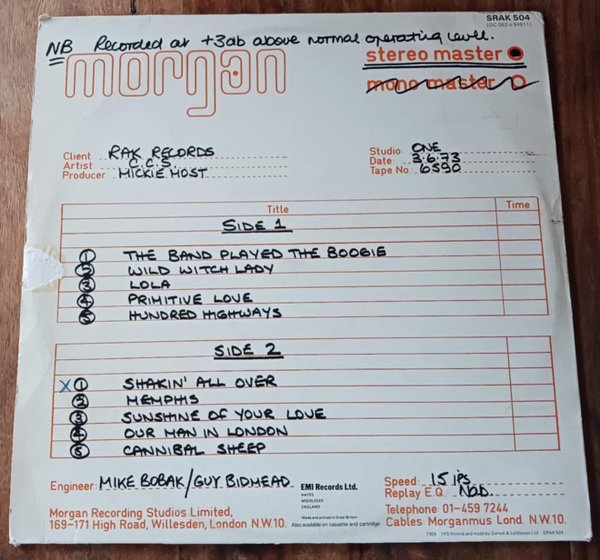 SRAK 504
(OC 062 o 94911)
NB Recorded at +3db above normal operating level.
morgan
stereo master
mono master
Client RAK RECORDS
Artist C.C.S.
Producer MICKIE MOST
Studio ONE
Date 3.6.73
Tape No. 6590
Title Time
SIDE 1
1 THE BAND PLAYED THE BOOGIE
2 WILD WITCH LADY
3 LOLA
4 PRIMITIVE LOVE
5 HUNDRED HIGHWAYS
SIDE 2
X 1 SHAKIN' ALL OVER
2 MEMPHIS
3 SUNSHINE OF YOUR LOVE
4 OUR MAN IN LONDON
5 CANNIBAL SHEEP
Engineer: MIKE BOBAK/GUY BIDMEAD
EMI Records Ltd.
HAYES
MIDDLESEX
ENGLAND
Speed: 15 ips
Replay E.Q. NAB.
Morgan Recording Studios Limited,
169-171 High Road, Willesden, London N.W.10.
Made and printed in Great Britain
Also available on cassette and cartridge.
Telephone 01-459 7244
Cables: Morganmus Lond. N.W.10.
7305 TPS Printed and made by Garrod & Lofthouse Ltd SRAK 504